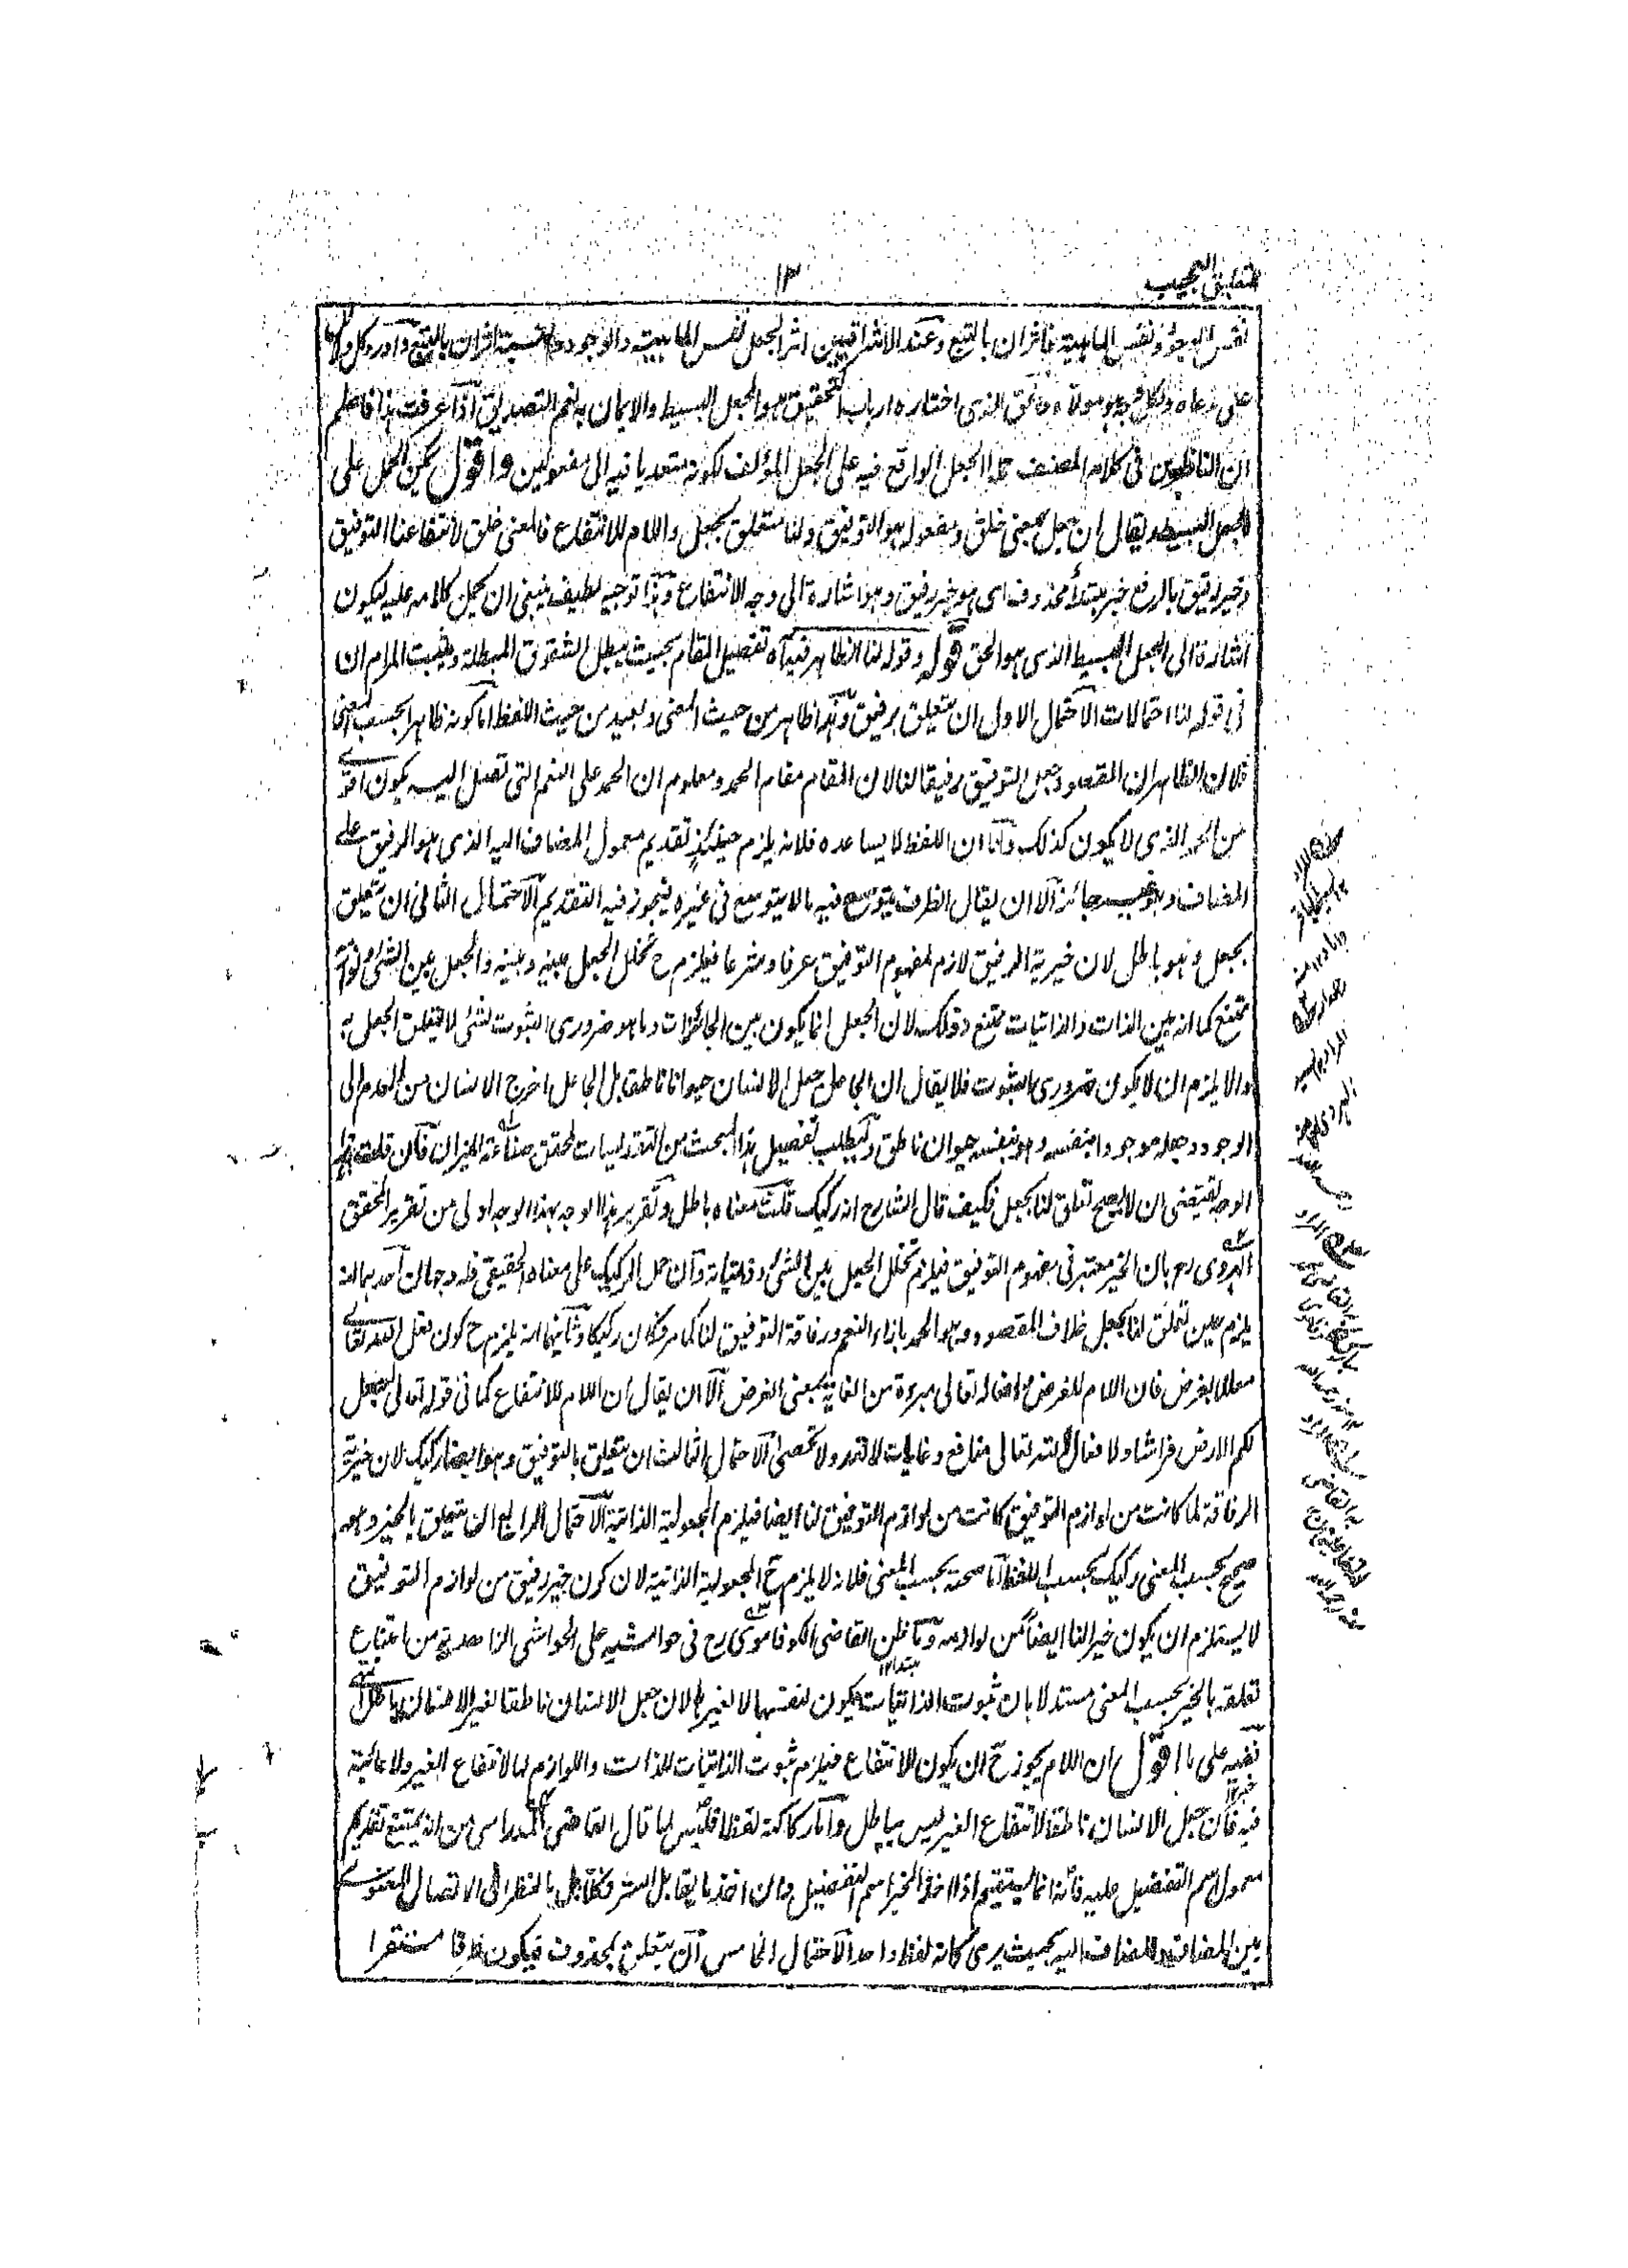 التعليق العجيب
١٣
نفس الوجود ونفس الماهية فاثران بالتبع وعند الاشراقيين اثر الجعل نفس الماهية والوجود والنسبة اثران بالتبع واورد كل دلائل
على مدعاه ولكل وجهة هو موليها فالحق الذى اختاره ارباب التحقيق هو الجعل البسيط والايمان به نعم التصديق اذا عرفت هذا فاعلم
ان الناظرين فى كلام المصنف حملوا الجعل الواقع فيه على الجعل المؤلف لكونه متعديا فيه الى مفعولين واقول يمكن الحمل على
الجعل البسيط ويقال ان جعل بمعنى خلق ومفعوله هو التوفيق ولنا متعلق بجعل واللام للانتفاع فالمعنى خلق لانتفاعنا التوفيق
وخير رفيق بالرفع خبر مبتدأ محذوف اى هو خير رفيق وهو اشارة الى وجه الانتفاع وهذا توجيه لطيف ينبغى ان يحمل كلامه عليه ليكون
اشارة الى الجعل البسيط الذى هو الحق قوله وقوله لنا الظاهر فيه آه تفصيل المقام بحيث يبطل الشقوق المبطلة ويثبت المرام ان
فى قوله لنا احتمالات الاحتمال الاول ان يتعلق برفيق وهذا ظاهر من حيث المعنى وبعيد من حيث اللفظ اما كونه ظاهرا بحسب المعنى
فلان الظاهر ان المقصود جعل التوفيق رفيقا لنا لان المقام مقام الحمد ومعلوم ان الحمد على النعم التى تصل اليه يكون اقوى
من الحمد الذى لا يكون كذلك واما ان اللفظ لا يساعده فلانه يلزم حينئذ تقديم معمول المضاف اليه الذى هو الرفيق على
المضاف وهو غير جائز الا ان يقال الظرف يتوسع فيه ما لا يتوسع فى غيره فيجوز فيه التقديم الاحتمال الثانى ان يتعلق
بجعل وهو باطل لان خيرية الرفيق لازم لمفهوم التوفيق عرفا وشرعا فيلزم ح تخلل الجعل بينه وبينه والجعل بين الشئ ولوازمه
ممتنع كما انه بين الذات والذاتيات ممتنع وذلك لان الجعل انما يكون بين الجائزات وما هو ضرورى الثبوت لشئ لا يتعلق الجعل به
والا يلزم ان لا يكون ضرورى الثبوت فلا يقال ان الجاعل جعل الانسان حيوانا ناطقا بل الجاعل اخرج الانسان من العدم الى
الوجود وجعله موجودا بنفسه وهو بنفسه حيوان ناطق وليطلب تفصيل هذا المبحث من التقديسات لمحقق صناعة الميزان فان قلت هذا
الوجه يقتضى ان لا يصح تعلق لنا بجعل فكيف قال الشارح انه ركيك قلت معناه باطل وتقرير هذا الوجه بهذا الوجه اولى من تقرير المحقق
الهروى رح بان الخير معتبر فى مفهوم التوفيق فيلزم تخلل الجعل بين الشئ وذاتياته وان حمل الركيك على معناه الحقيقى فله وجهان احدهما انه
يلزم حين تعلق لنا بجعل خلاف المقصود وهو الحمد بازاء النعم ورفاقة التوفيق لنا كما مر فكان ركيكا وثانيهما انه يلزم ح كون فعل الله تعالى
معللا بغرض فان اللام للغرض وافعاله تعالى مبرءة من الغاية بمعنى الغرض الا ان يقال ان اللام للانتفاع كما فى قوله تعالى جعل
لكم الارض فراشا ولافعال الله تعالى منافع وغايات لا تعد ولا تحصى الاحتمال الثالث ان يتعلق بالتوفيق وهو ايضا ركيك لان خيرية
الرفاقة لما كانت من لوازم التوفيق كانت من لوازم التوفيق لنا ايضا فيلزم المجعولية الذاتية الاحتمال الرابع ان يتعلق بالخير وهو
صحيح بحسب المعنى ركيك بحسب اللفظ اما صحته بحسب المعنى فلانه لا يلزم ح المجعولية الذاتية لان كون خير رفيق من لوازم التوفيق
لا يستلزم ان يكون خيرا لنا ايضا من لوازمه وما ظن القاضى الكوفاموى رح فى حواشيه على الحواشى الزاهدية من امتناع
تعلقه بالخير بحسب المعنى مستدلا بان ثبوت الذاتيات يكون لنفسها لا لغيرها لان جعل الانسان ناطقا لغير الانسان باطل انتهى
ففيه على ما اقول ان اللام يجوز ح ان يكون للانتفاع فيلزم ثبوت الذاتيات للذات واللوازم لها لانتفاع الغير ولا غائية
فيه فان جعل الانسان ناطقا لانتفاع الغير ليس بباطل واما ركاكته لفظا فليس لما قال القاضى المدراسى من انه يمتنع تقديم
معمول اسم التفضيل عليه فانه انما يستقيم اذا اخذ الخير اسم التفضيل وان اخذ ما يقابل الشر فكلا بل بالنظر الى الاتصال المعنوى
بين المضاف والمضاف اليه بحيث يرى كانه لفظ واحد الاحتمال الخامس ان يتعلق بمحذوف فيكون ظرفا مستقرا